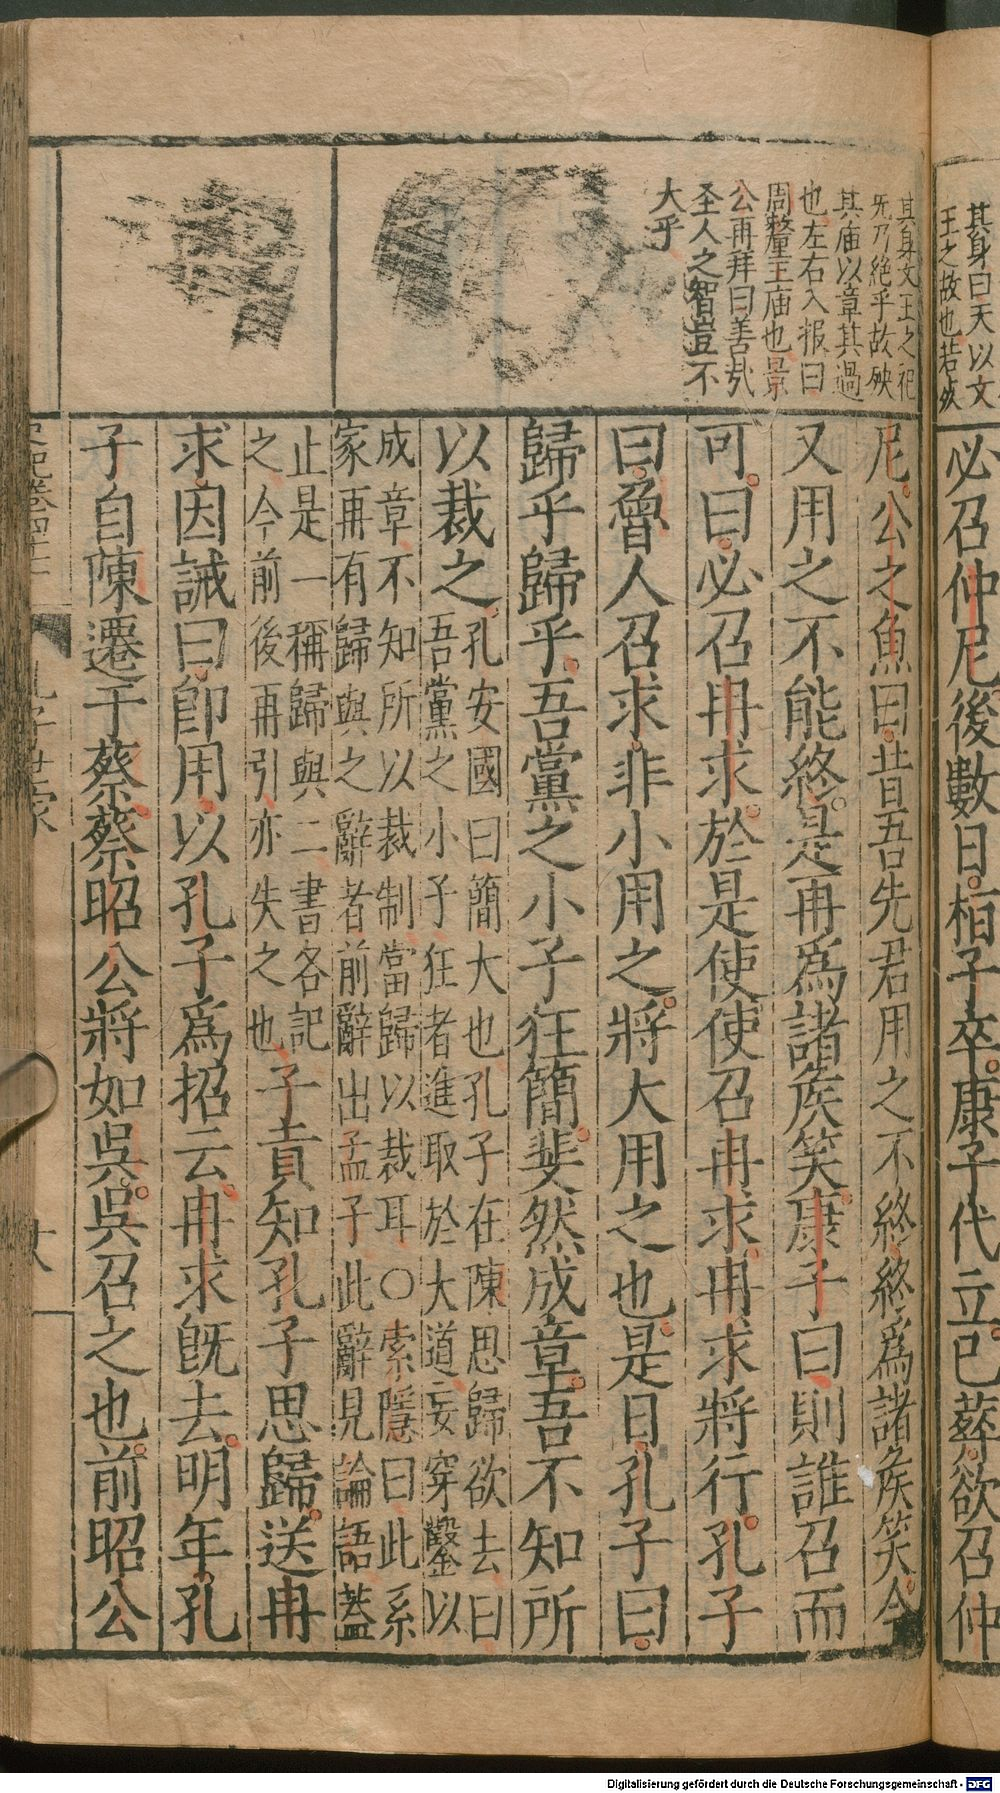 其身曰天以文
王之故也若然
必召仲尼後數日桓子卒康子代立已葬欲召仲
其身文王之祀
旡乃絶乎故殃
其庙以章其過
也左右入报曰
周釐王庙也景
公再拜曰善㢤
圣人之智豈不
大乎
尼公之魚曰昔吾先君用之不終終爲諸矦笑今
又用之不能終是再爲諸矦笑康子曰則誰召而
可曰必召冉求於是使使召冉求冉求將行孔子
曰魯人召求非小用之將大用之也是日孔子曰
歸乎歸乎吾黨之小子狂簡斐然成章吾不知所
以裁之
孔安國曰簡大也孔子在陳思歸欲去曰
吾黨之小子狂者進取於大道妄穿鑿以
成章不知所以裁制當歸以裁耳○索隱曰此系
家再有歸與之辭者前辭出孟子此辭見論語蓋
止是一稱歸與二書各記
之今前後再引亦失之也
子貢知孔子思歸送冉
求因誡曰卽用以孔子爲招云冉求旣去明年孔
子自陳遷于蔡蔡昭公將如吳吳召之也前昭公
孔子世家
Digitalisierung gefördert durch die Deutsche Forschungsgemeinschaft - DFG